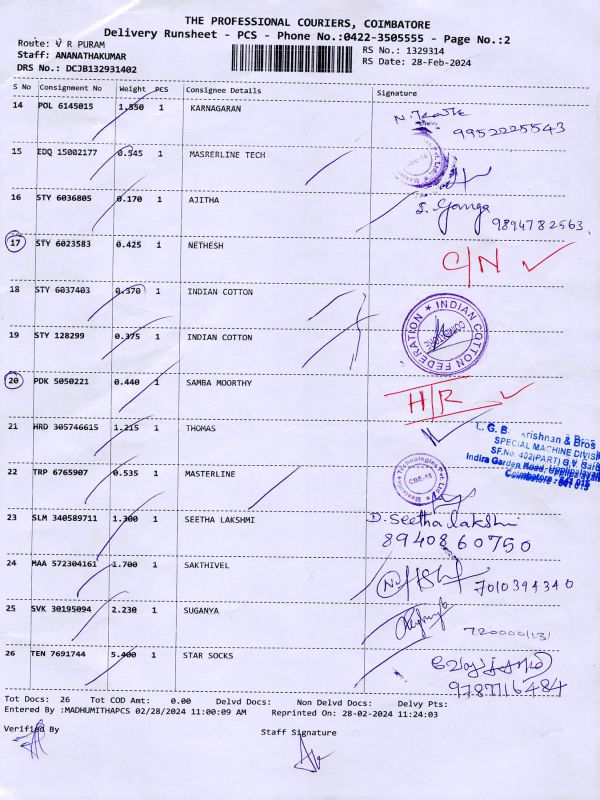 THE PROFESSIONAL COURIERS, COIMBATORE
Delivery Runsheet - PCS - Phone No.:0422-3505555 - Page No.:2
Route: V R PURAM
RS No.: 1329314
Staff: ANANATHAKUMAR
RS Date: 28-Feb-2024
DRS No.: DCJB132931402
S No Consignment No Weight PCS Consignee Details Signature
14 POL 6145015 1.350 1 KARNAGARAN
9952225543
15 EDQ 15002177 0.545 1 MASRERLINE TECH
CBE-15
16 STY 6036805 0.170 1 AJITHA
S. Ganga
9894782563
17 STY 6023583 0.425 1 NETHESH C/N
18 STY 6037403 0.370 1 INDIAN COTTON
INDIAN COTTON FEDERATION
COIMBATORE
19 STY 128299 0.375 1 INDIAN COTTON
20 PDK 5050221 0.440 1 SAMBA MOORTHY H/R
21 HRD 305746615 1.215 1 THOMAS
L. G. B. krishnan & Bros
SPECIAL MACHINE DIVISI
SF.No. 402(PART) G.V.
Indira Garden Road, Uppilipalayam
Coimbatore - 641 015
22 TRP 6765907 0.535 1 MASTERLINE
Masterline Technologies Pvt. Ltd.
CBE-15
23 SLM 340589711 1.300 1 SEETHA LAKSHMI
D. Seetha lakshmi
8940860750
24 MAA 572304161 1.700 1 SAKTHIVEL
7010394340
25 SVK 30195094 2.230 1 SUGANYA
26 TEN 7691744 5.400 1 STAR SOCKS
9787716484
Tot Docs: 26 Tot COD Amt: 0.00 Delvd Docs: Non Delvd Docs: Delvy Pts:
Entered By :MADHUMITHAPCS 02/28/2024 11:00:09 AM Reprinted On: 28-02-2024 11:24:03
Verified By
Staff Signature